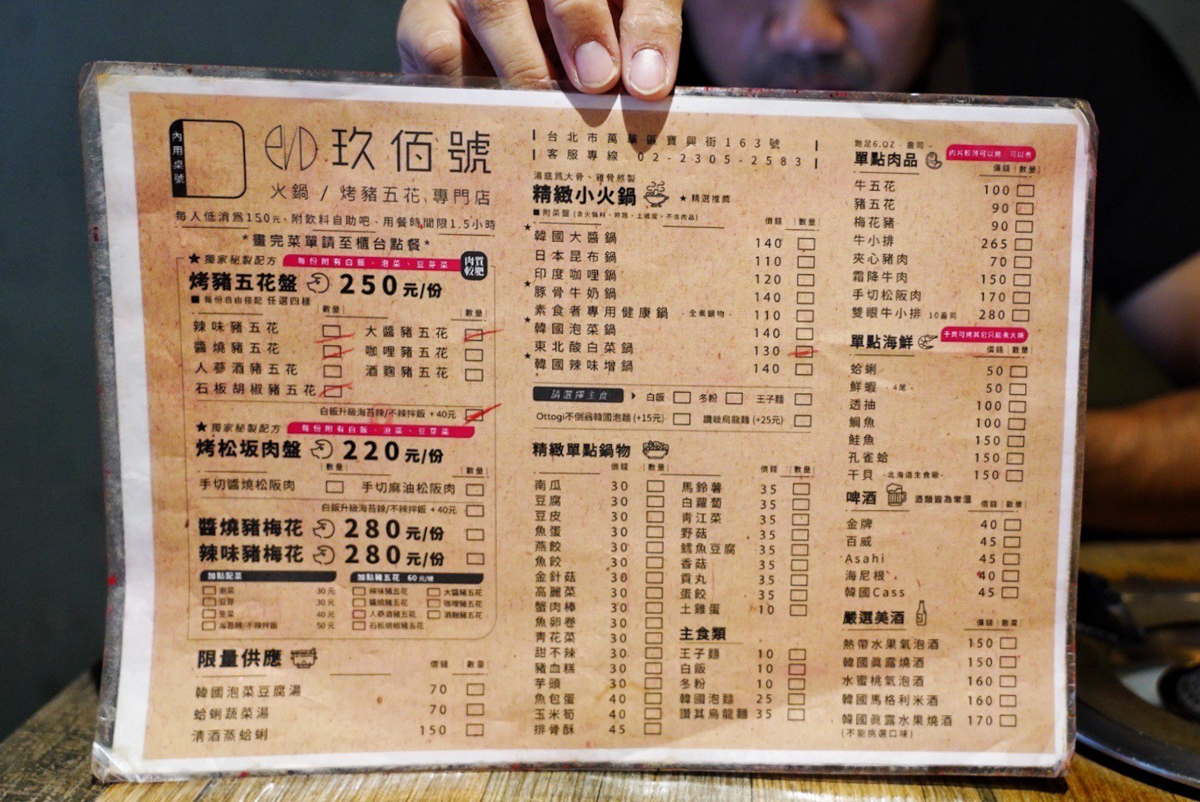 內用桌號
玖佰號
火鍋 / 烤豬五花 專門店
每人低消為150元、附飲料自助吧、用餐時間限1.5小時
*畫完菜單請至櫃台點餐*
★ 獨家秘製配方 每份附有白飯、泡菜、豆芽菜
肉質較肥
烤豬五花盤 250元/份
■ 每份自由搭配 任選四樣
數量 數量
辣味豬五花 大醬豬五花
醬燒豬五花 咖哩豬五花
人蔘酒豬五花 酒麴豬五花
石板胡椒豬五花
白飯升級海苔辣/不辣拌飯 +40元
★ 獨家秘製配方 每份附有白飯、泡菜、豆芽菜
烤松坂肉盤 220元/份
數量 數量
手切醬燒松阪肉 手切麻油松阪肉
白飯升級海苔辣/不辣拌飯 +40元
醬燒豬梅花 280元/份
辣味豬梅花 280元/份
加點配菜
泡菜 30元
豆芽 30元
生菜 40元
海苔辣/不辣拌飯 50元
加點豬五花 60元/條
辣味豬五花 大醬豬五花
醬燒豬五花 咖哩豬五花
人蔘酒豬五花 酒麴豬五花
石板胡椒豬五花
限量供應
價錢 數量
韓國泡菜豆腐湯 70
蛤蜊蔬菜湯 70
清酒蒸蛤蜊 150
台北市萬華區寶興街163號
客服專線 02-2305-2583
湯底為大骨、雞骨熬製
精緻小火鍋 ★ 精選推薦
■ 附菜盤 (含火鍋料、時蔬、土雞蛋、不含肉品)
價錢 數量
★ 韓國大醬鍋 140
日本昆布鍋 110
印度咖哩鍋 120
★ 豚骨牛奶鍋 140
素食者專用健康鍋 -全素鍋物- 110
★ 韓國泡菜鍋 140
東北酸白菜鍋 130
★ 韓國辣味增鍋 140
請選擇主食 白飯 冬粉 王子麵
Ottogi不倒翁韓國泡麵 (+15元) 讚岐烏龍麵 (+25元)
精緻單點鍋物
價錢 數量
南瓜 30
豆腐 30
豆皮 30
魚蛋 30
燕餃 30
魚餃 30
金針菇 30
高麗菜 30
蟹肉棒 30
魚卵卷 30
青花菜 30
甜不辣 30
豬血糕 30
芋頭 30
魚包蛋 40
玉米筍 40
排骨酥 45
價錢 數量
馬鈴薯 35
白蘿蔔 35
青江菜 35
野菇 35
鱈魚豆腐 35
香菇 35
貢丸 35
蛋餃 35
土雞蛋 10
主食類
王子麵 10
白飯 10
冬粉 10
韓國泡麵 25
讚其烏龍麵 35
飽足6.OZ - 壽司 -
單點肉品 肉片較薄可以烤、可以煮
價錢 數量
牛五花 100
豬五花 90
梅花豬 90
牛小排 265
夾心豬肉 70
霜降牛肉 150
手切松阪肉 170
雙眼牛小排 10盎司 280
單點海鮮 干貝可烤其它只能煮火鍋
價錢 數量
蛤蜊 50
鮮蝦 - 4尾 - 50
透抽 100
鯛魚 100
鮭魚 150
孔雀蛤 150
干貝 -北海道生食級- 150
啤酒 酒類皆為常溫
價錢 數量
金牌 40
百威 45
Asahi 45
海尼根 40
韓國Cass 45
嚴選美酒
價錢 數量
熱帶水果氣泡酒 150
韓國眞露燒酒 150
水蜜桃氣泡酒 160
韓國馬格利米酒 160
韓國眞露水果燒酒 170
(不能挑選口味)